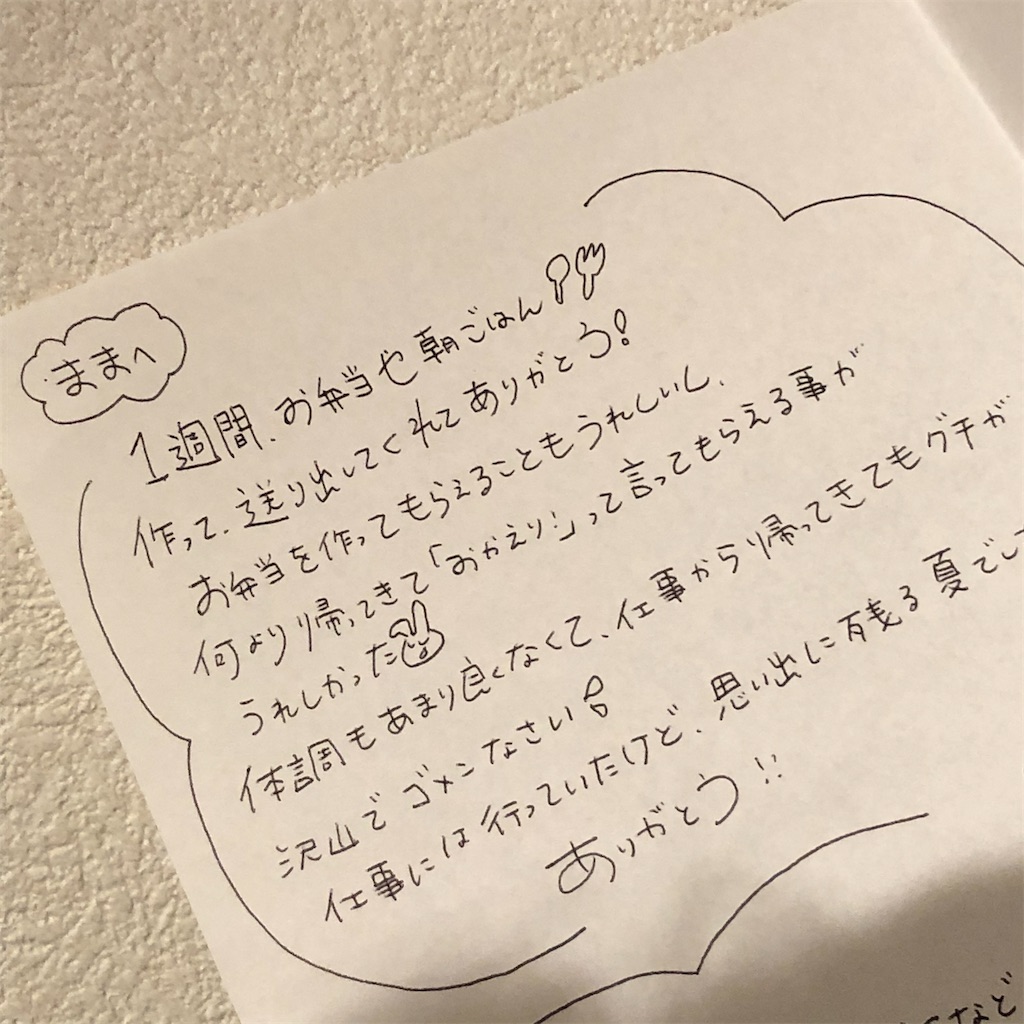 ままへ
1週間、お弁当や朝ごはん
作って、送り出してくれてありがとう!
お弁当を作ってもらえることもうれしいし、
何より帰ってきて「おかえり!」って言ってもらえる事が
うれしかった
体調もあまり良くなくて、仕事から帰ってきてもグチが
沢山でゴメンなさい
仕事には行っていたけど、思い出に残る夏でして
ありがとう!!
など